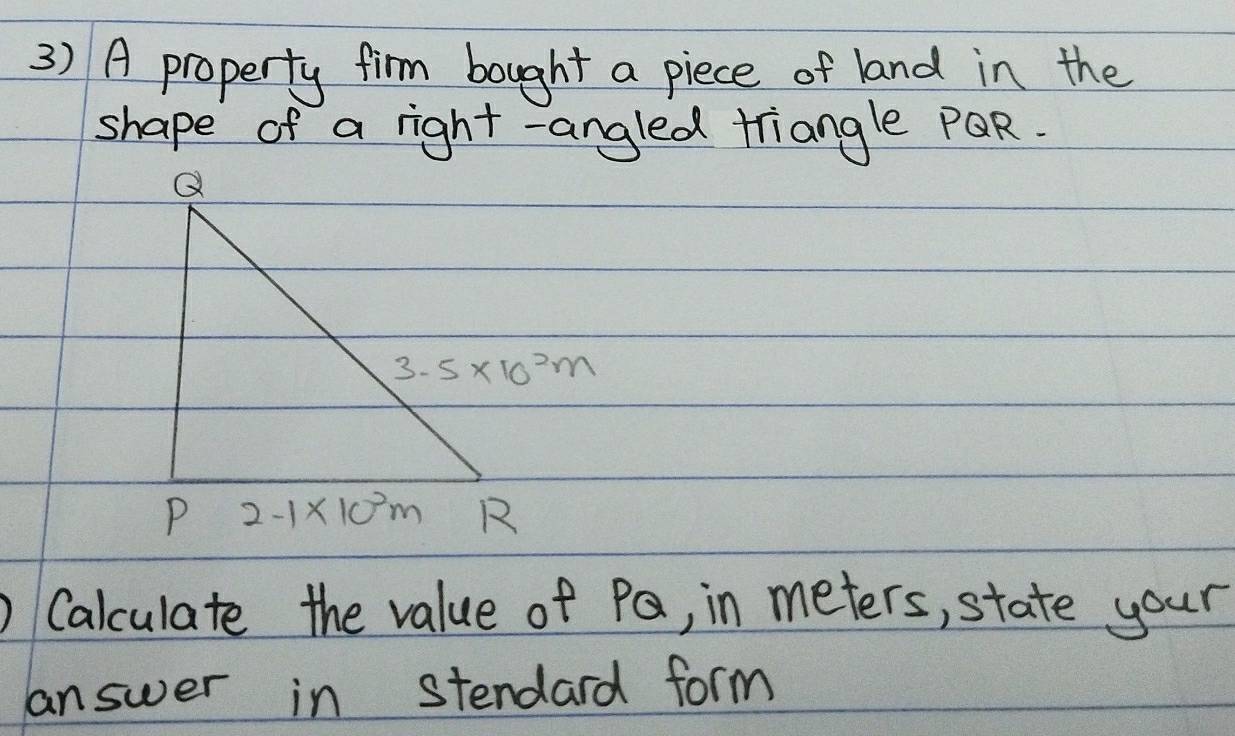 3) A property firm bought a piece of land in the
shape of a right-angled triangle PQR.
Q
3.5 × 10²m
P 2.1 × 10²m R
) Calculate the value of PQ, in meters, state your
answer in stendard form